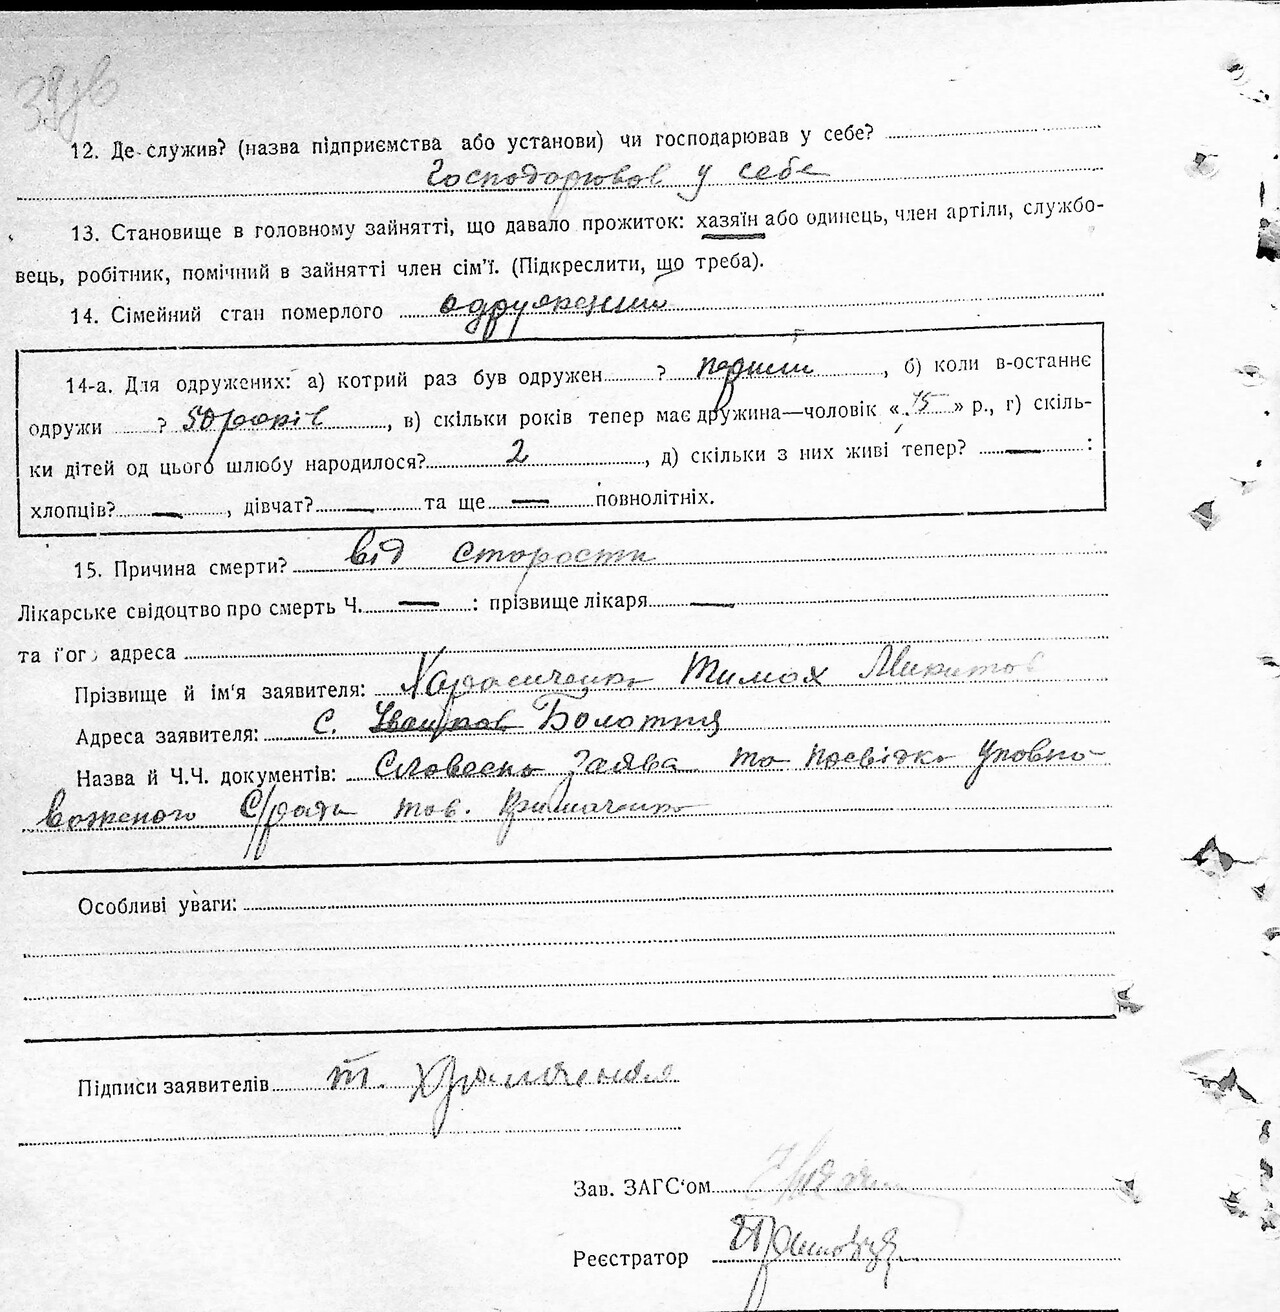 39зв
12. Де служив? (назва підприємства або установи) чи господарював у себе?
Господарював у себе
13. Становище в головному зайнятті, що давало прожиток: хазяїн або одинець, член артіли, службо-
вець, робітник, помічний в зайнятті член сім’ї. (Підкреслити, що треба).
14. Сімейний стан померлого одружений
14-а. Для одружених: а) котрий раз був одружен ? перший, б) коли в-останнє
одружи ? 50 років, в) скільки років тепер має дружина—чоловік «75» р., г) скіль-
ки дітей од цього шлюбу народилося? 2, д) скільки з них живі тепер? — :
хлопців? —, дівчат? — та ще — повнолітніх.
15. Причина смерти? від старости
Лікарське свідоцтво про смерть Ч. — : прізвище лікаря —
та його адреса
Прізвище й ім’я заявителя: Тимох Микитов
Адреса заявителя: с. Болотня
Назва й Ч.Ч. документів: Словесна заява та посвідка уповно-
важеного С/ради тов.
Особливі уваги:
Підписи заявителів Т.
Зав. ЗАГС‘ом
Реєстратор